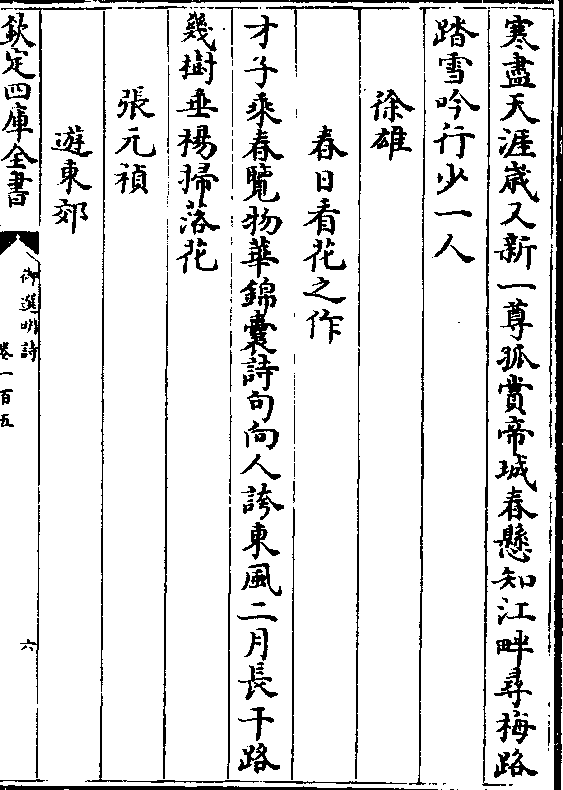 寒盡天涯歲又新一尊孤賞帝城春懸知江畔尋梅路
踏雪吟行少一人
徐雄
春日看花之作
才子乘春覽物華錦囊詩句向人誇東風二月長干路
幾樹垂楊掃落花
張元禎
遊東郊
欽定四庫全書
御選明詩
卷一百五
六